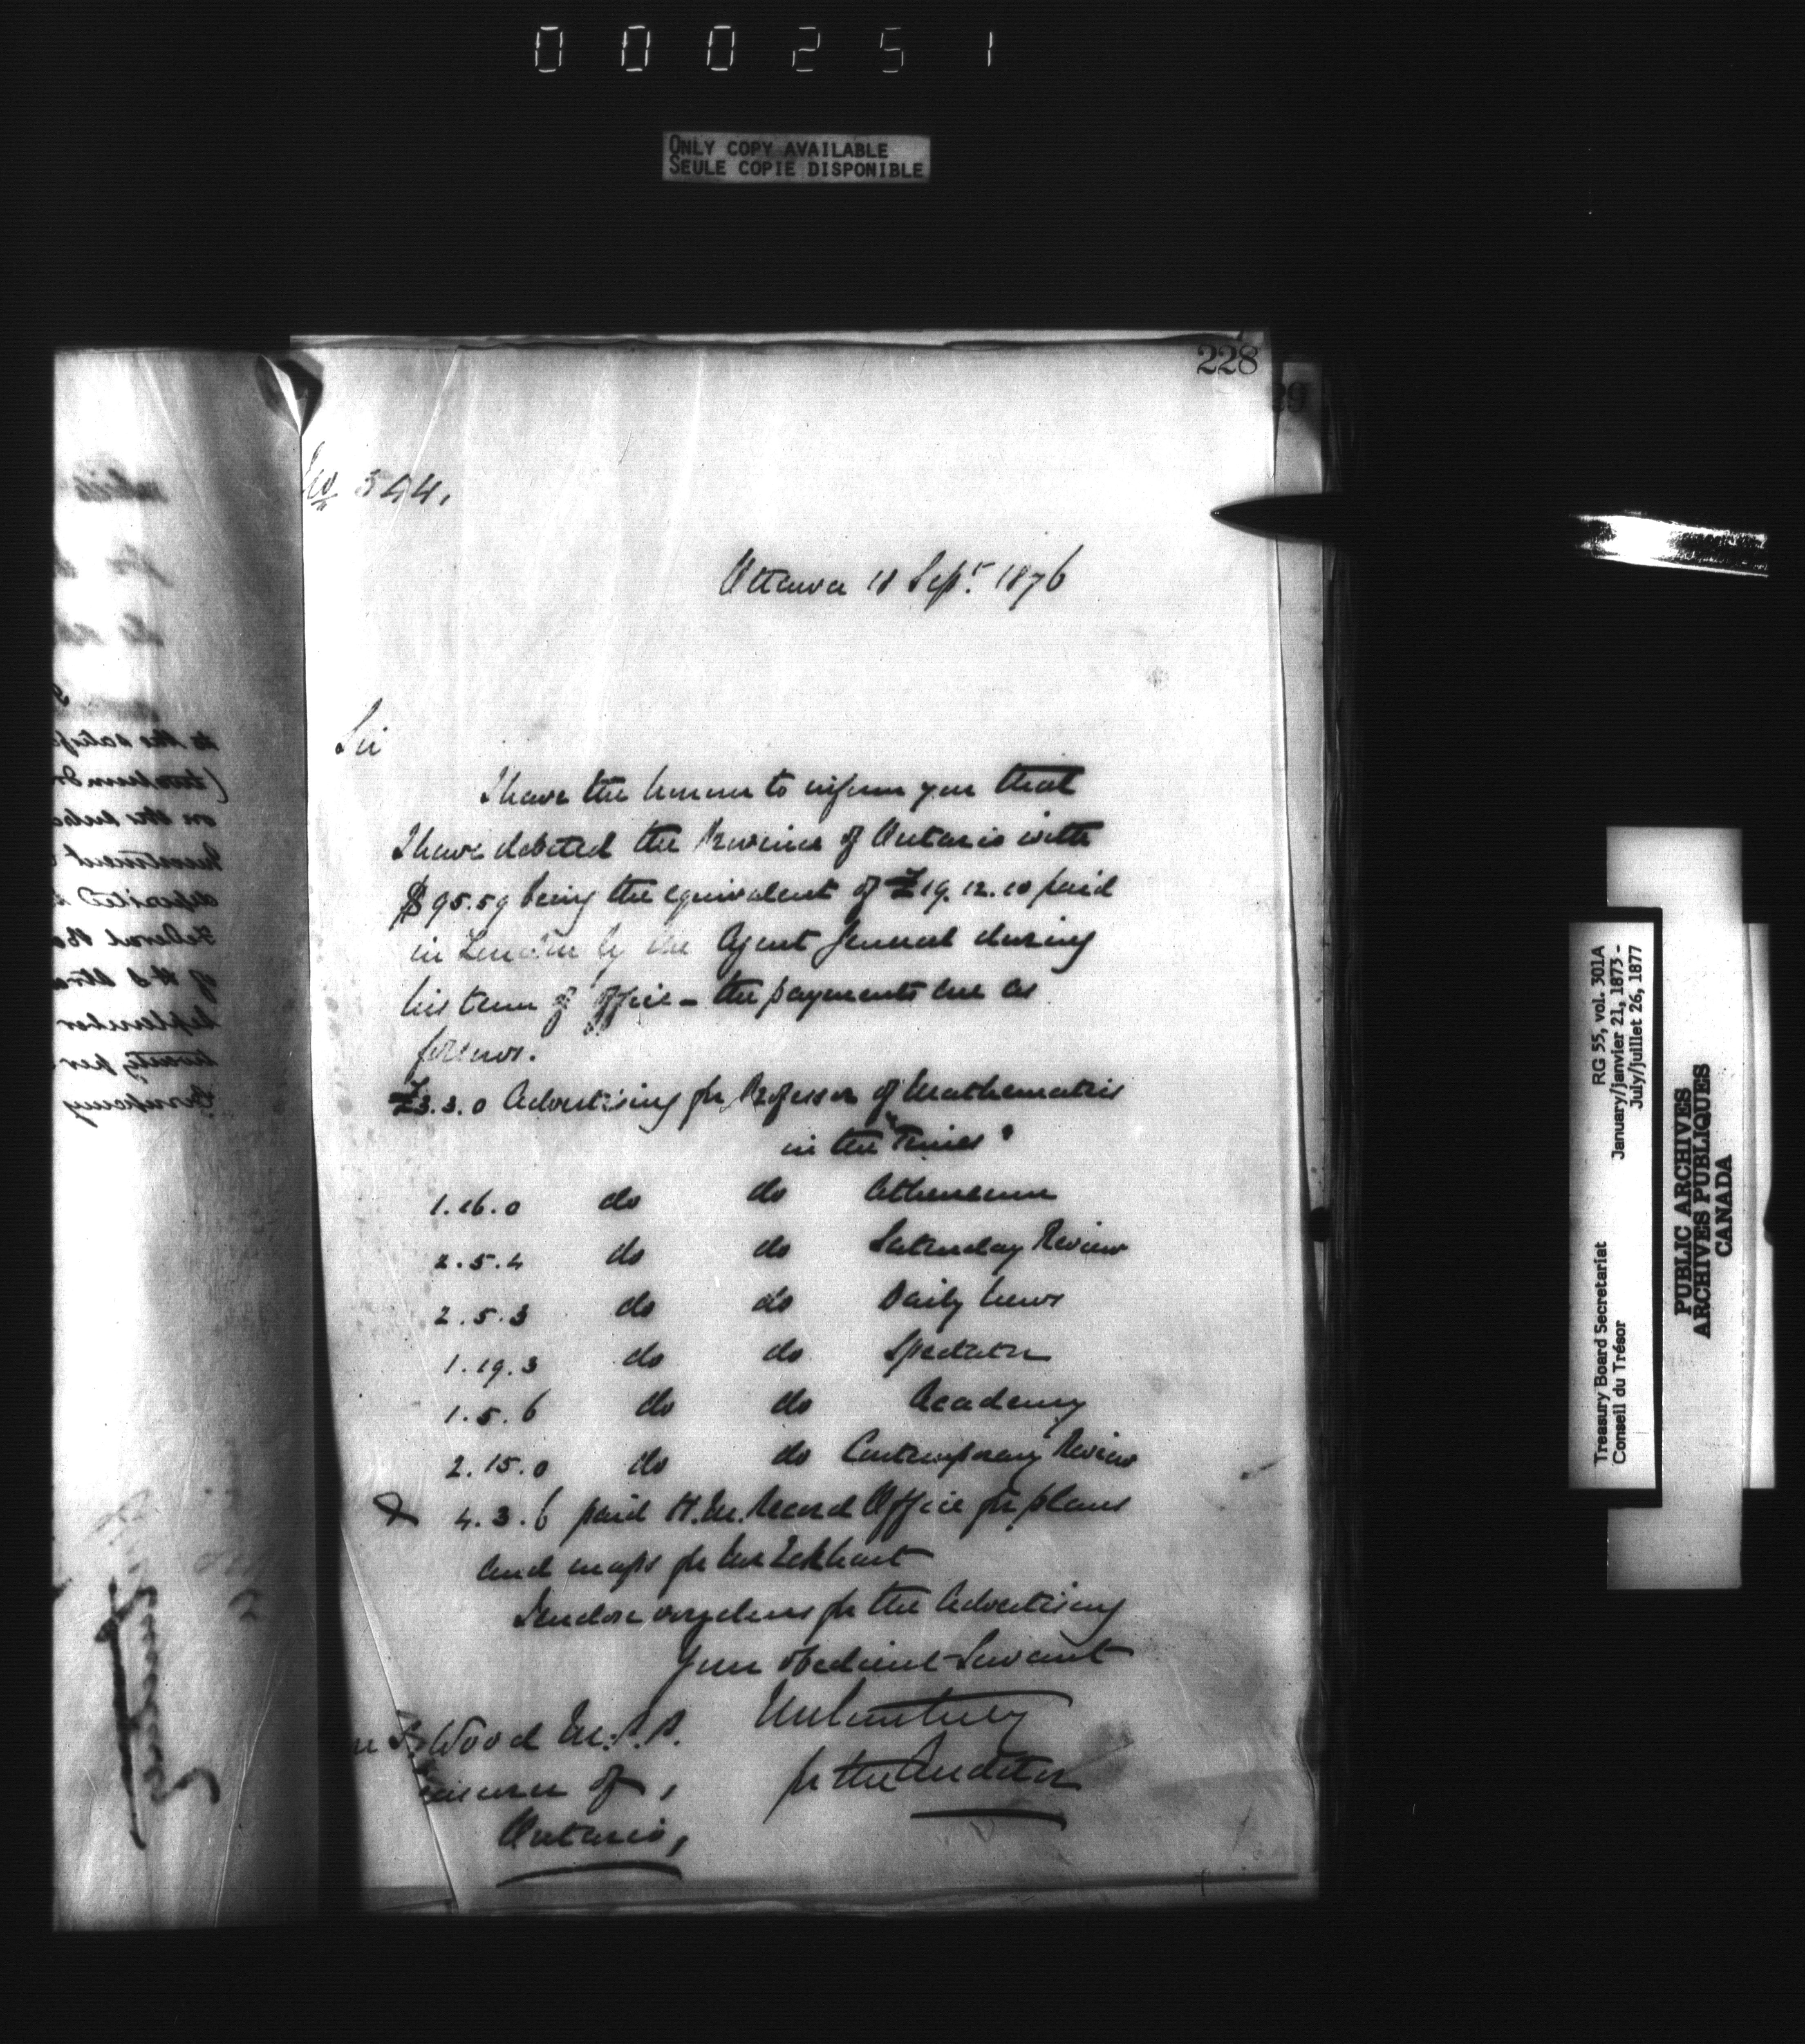 000251
ONLY COPY AVAILABLE
SEULE COPIE DISPONIBLE
228
29
No 544.
Ottawa 18 Sept. 1876
Sir
I have the honour to inform you that
I have debited the Province of Ontario with
$95.59 being the equivalent of £19.12.10 paid
in London by the Agent General during
his term of office – the payments are as
follows.
£3.3.0 Advertising for Professor of Mathematics
in the "Times"
1.16.0 do do Atheneum
2.5.4 do do Saturday Review
2.5.3 do do Daily News
1.19.3 do do Spectator
1.5.6 do do Academy
2.15.0 do do Contemporary Review
4.3.6 paid H.M. Record Office for plans
and maps for Mr Eckhart
I enclose vouchers for the Advertising
Your obedient Servant
for the Auditor
Wood M.P.P.
Treasurer of,
Ontario,
RG 55, vol. 301A
January/janvier 21, 1873 -
July/juillet 26, 1877
Treasury Board Secretariat
Conseil du Trésor
PUBLIC ARCHIVES
ARCHIVES PUBLIQUES
CANADA